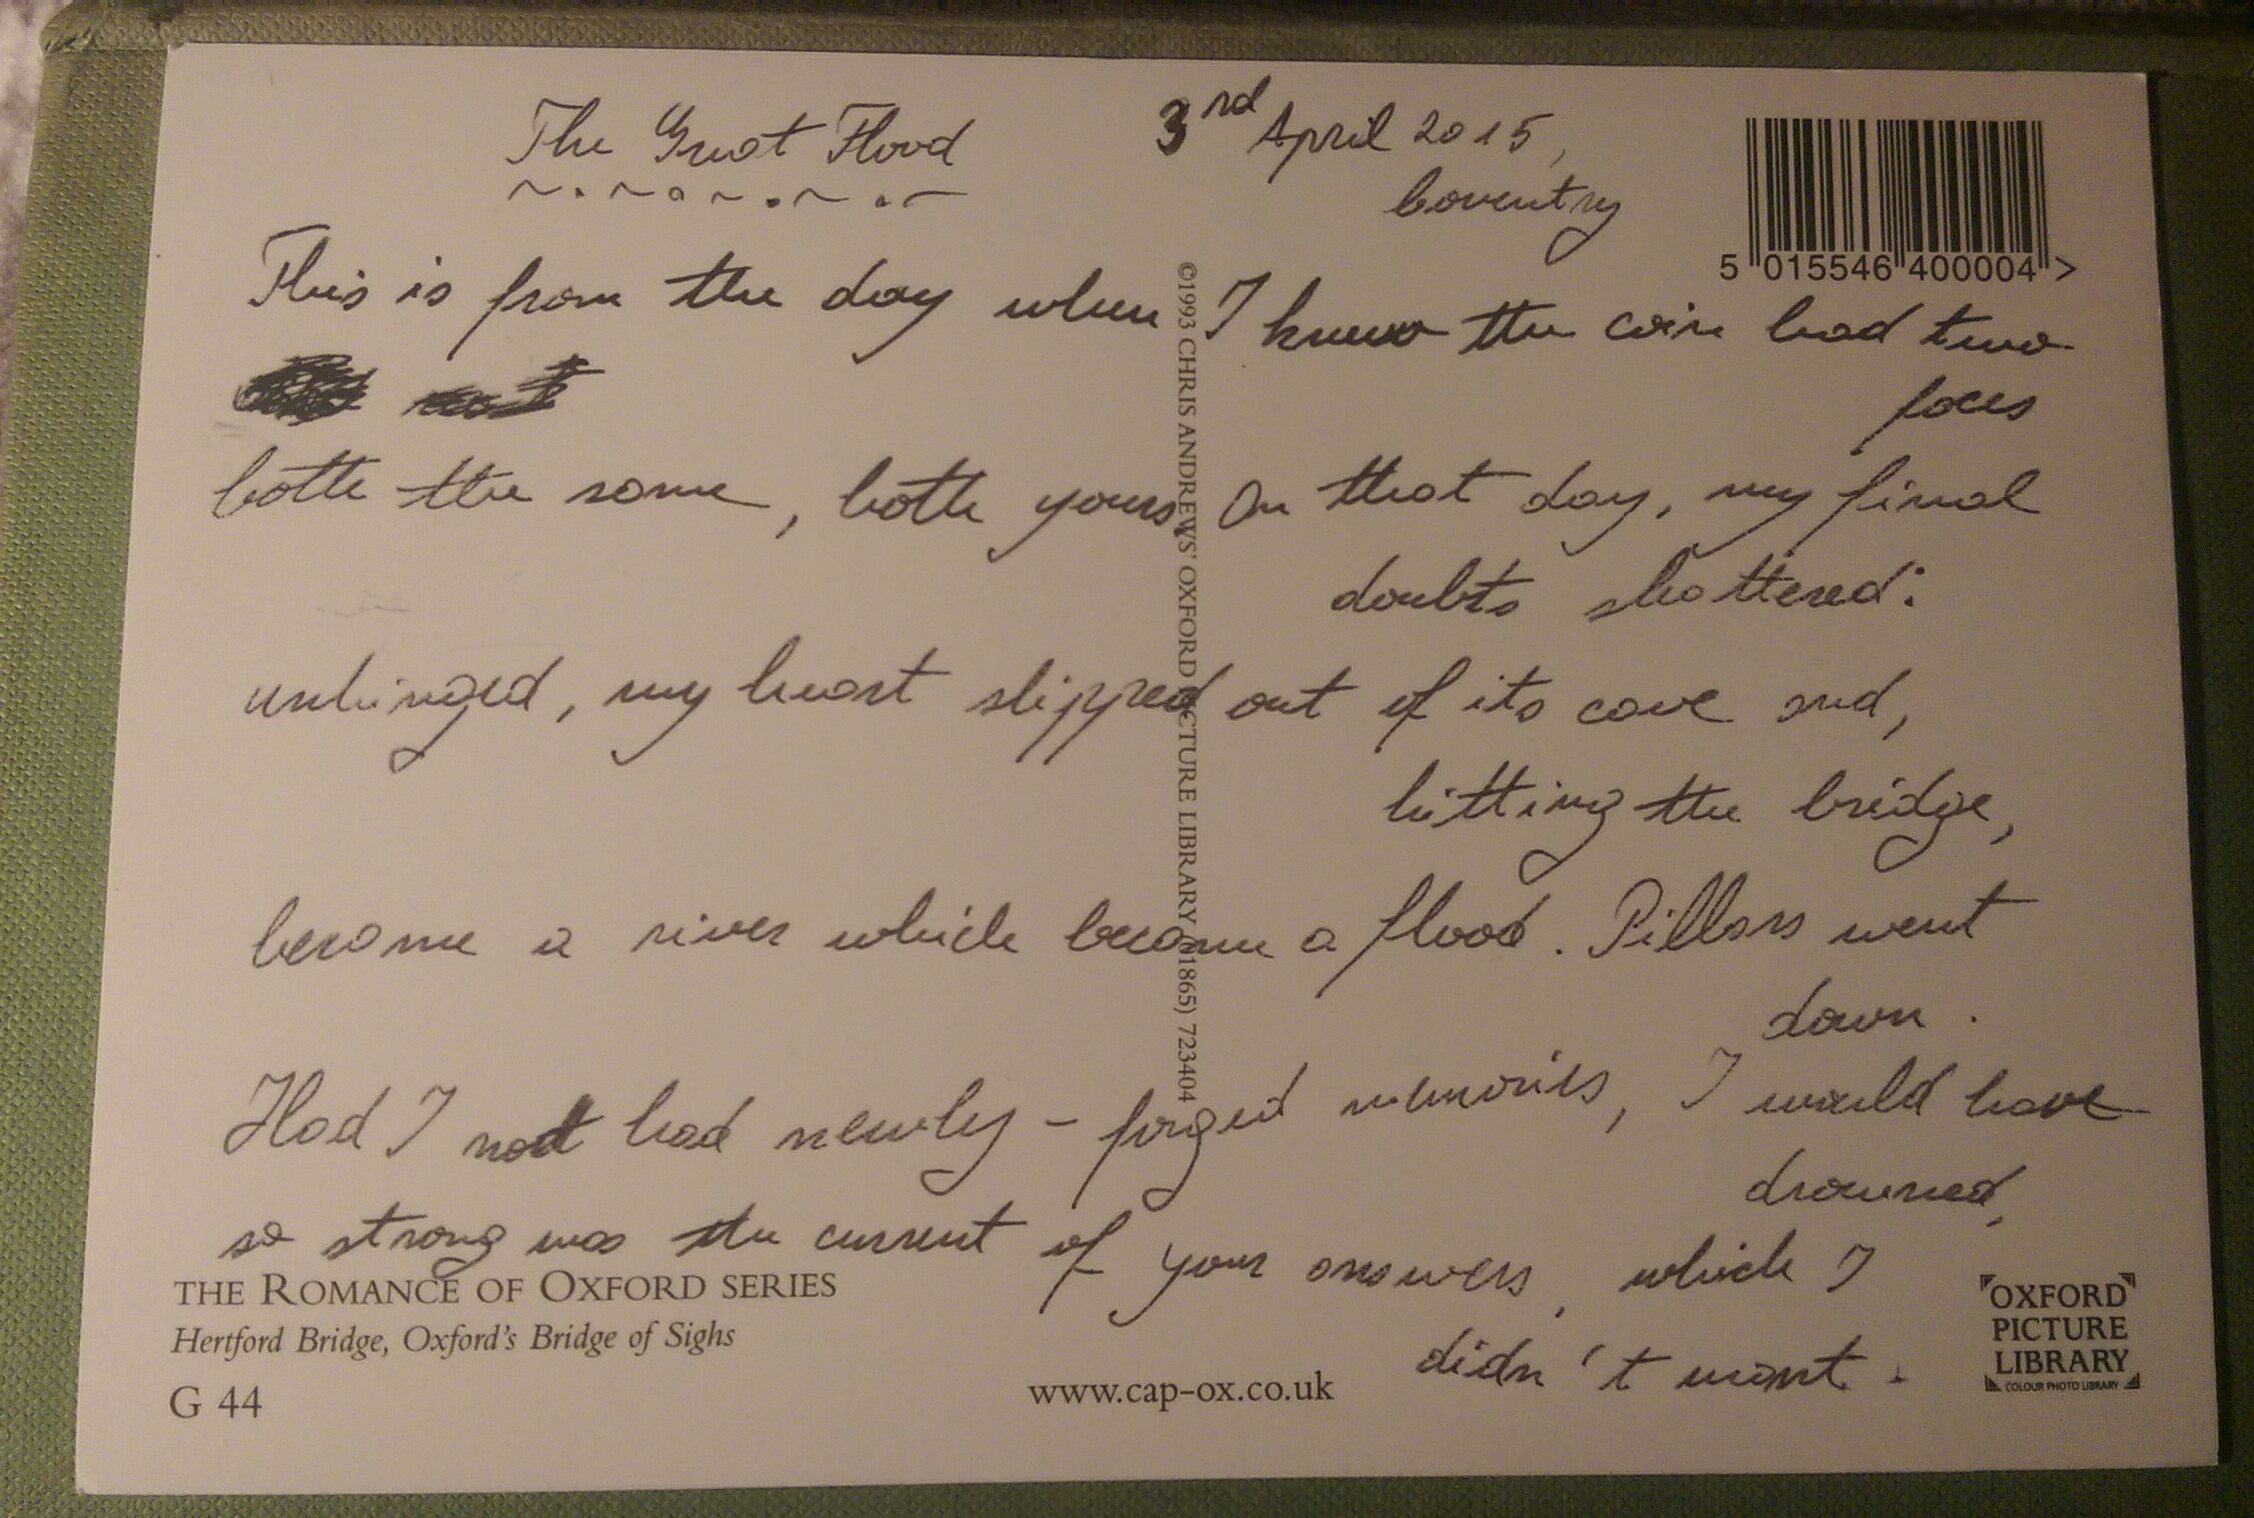 The Great Flood
3rd April 2015,
Coventry
5 015546 400004 >
This is from the day when I knew the coin had two
faces
both the same, both yours. On that day, my final
doubts shattered:
unhinged, my heart slipped out of its cave and,
hitting the bridge,
became a river which became a flood. Pillars went
down.
Had I not had newly-forged memories, I would have
drowned,
so strong was the current of your answers, which I
didn't want.
©1993 CHRIS ANDREWS' OXFORD PICTURE LIBRARY (01865) 723404
THE ROMANCE OF OXFORD SERIES
Hertford Bridge, Oxford's Bridge of Sighs
G 44
www.cap-ox.co.uk
OXFORD
PICTURE
LIBRARY
COLOUR PHOTO LIBRARY